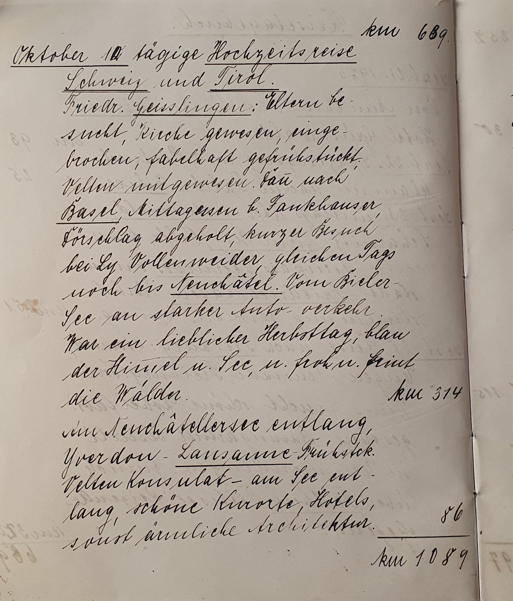 km 689.
Oktober 12 tägige Hochzeitsreise
Schweiz und Tirol.
Friedr. Geisslingen: Eltern be-
sucht, Kirche gewesen, einge-
brochen, fabelhaft gefrühstückt,
Velten mitgewesen. Dan̄ nach
Basel, Mittagessen b. Fankhauser,
abgeholt, kurzer Besuch
bei Ly Vollenweider, gleichen Tags
noch bis Neuchâtel. Vom Bieler-
See an starker Auto verkehr.
War ein lieblicher Herbsttag, blau
der Him̄el u. See, u. froh u.
die Wälder. km 314
Am Neuchâtellersee entlang,
Yverdon - Lausanne Frühstck.
Velten Konsulat - am See ent-
lang, schöne Kurorte, Hotels,
sonst ärmliche Architektur. 86
km 1089